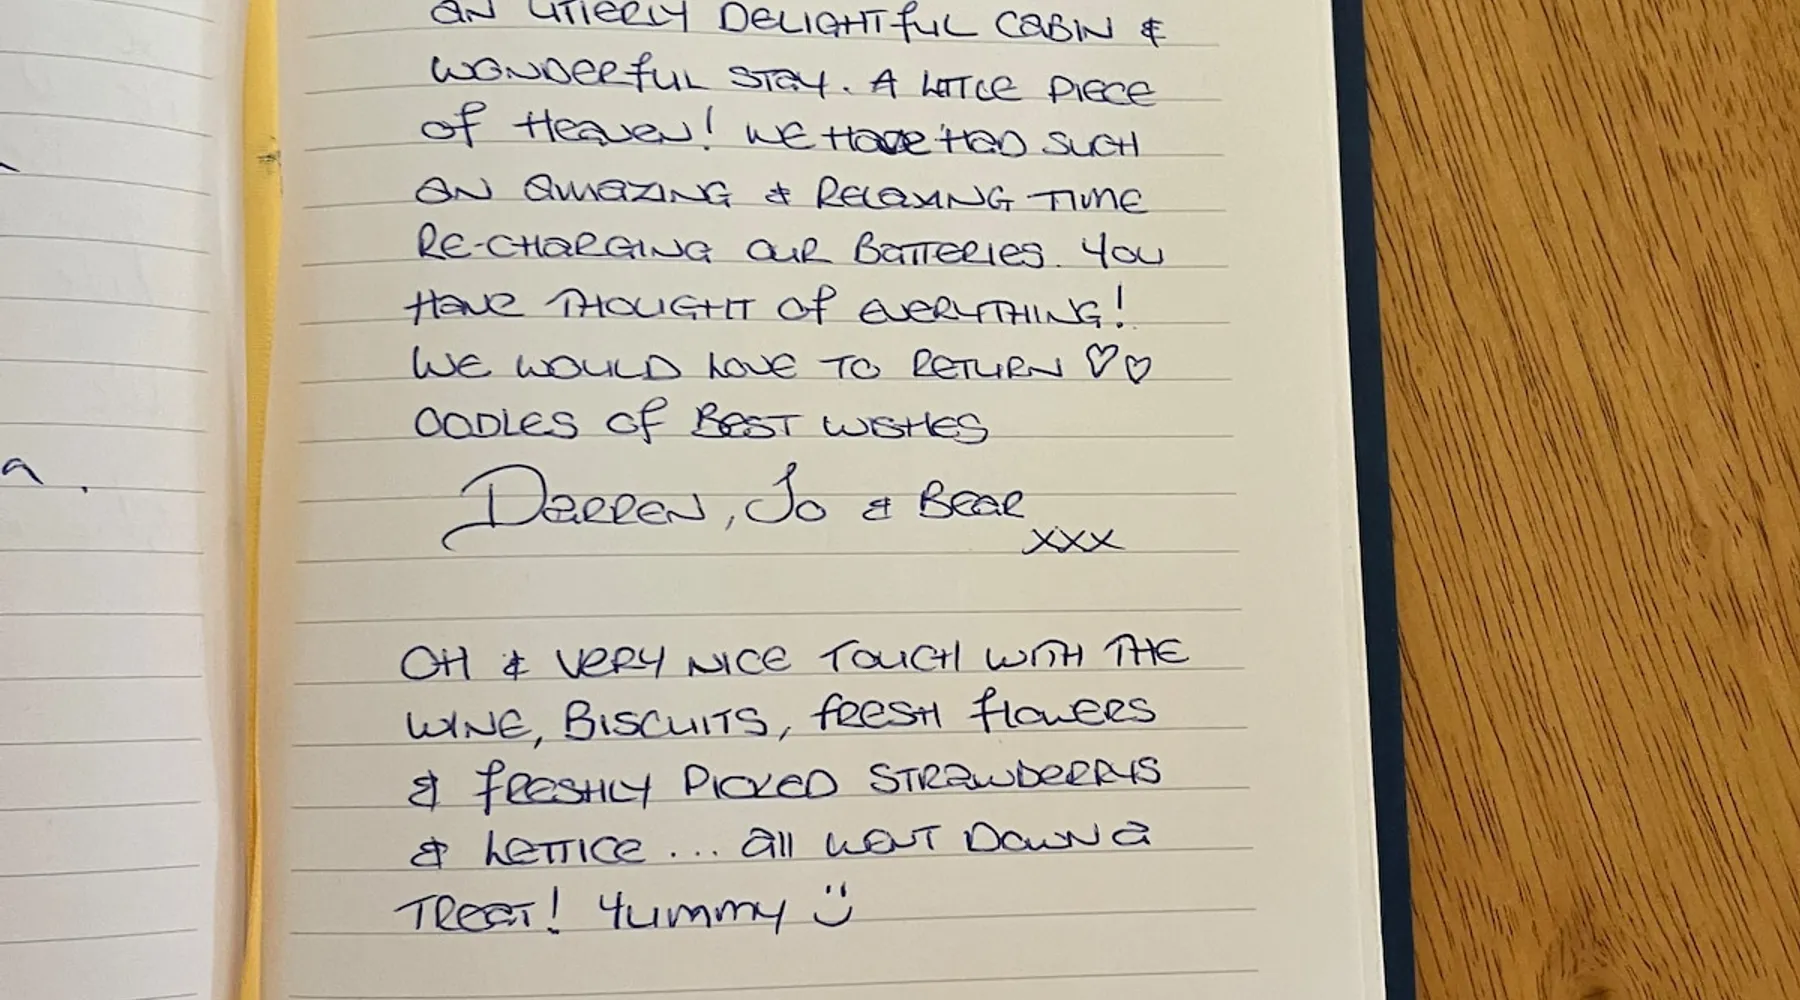 AN UTTERLY DELIGHTFUL CABIN &
WONDERFUL STAY. A LITTLE PIECE
OF HEAVEN! WE HAVE HAD SUCH
AN AMAZING & RELAXING TIME
RE-CHARGING OUR BATTERIES. YOU
HAVE THOUGHT OF EVERYTHING!
WE WOULD LOVE TO RETURN ♡♡
OODLES OF BEST WISHES
DARREN, JO & BEAR
xxx
OH & VERY NICE TOUCH WITH THE
WINE, BISCUITS, FRESH FLOWERS
& FRESHLY PICKED STRAWBERRYS
& LETTICE... all WENT DOWN A
TREAT! YUMMY :)